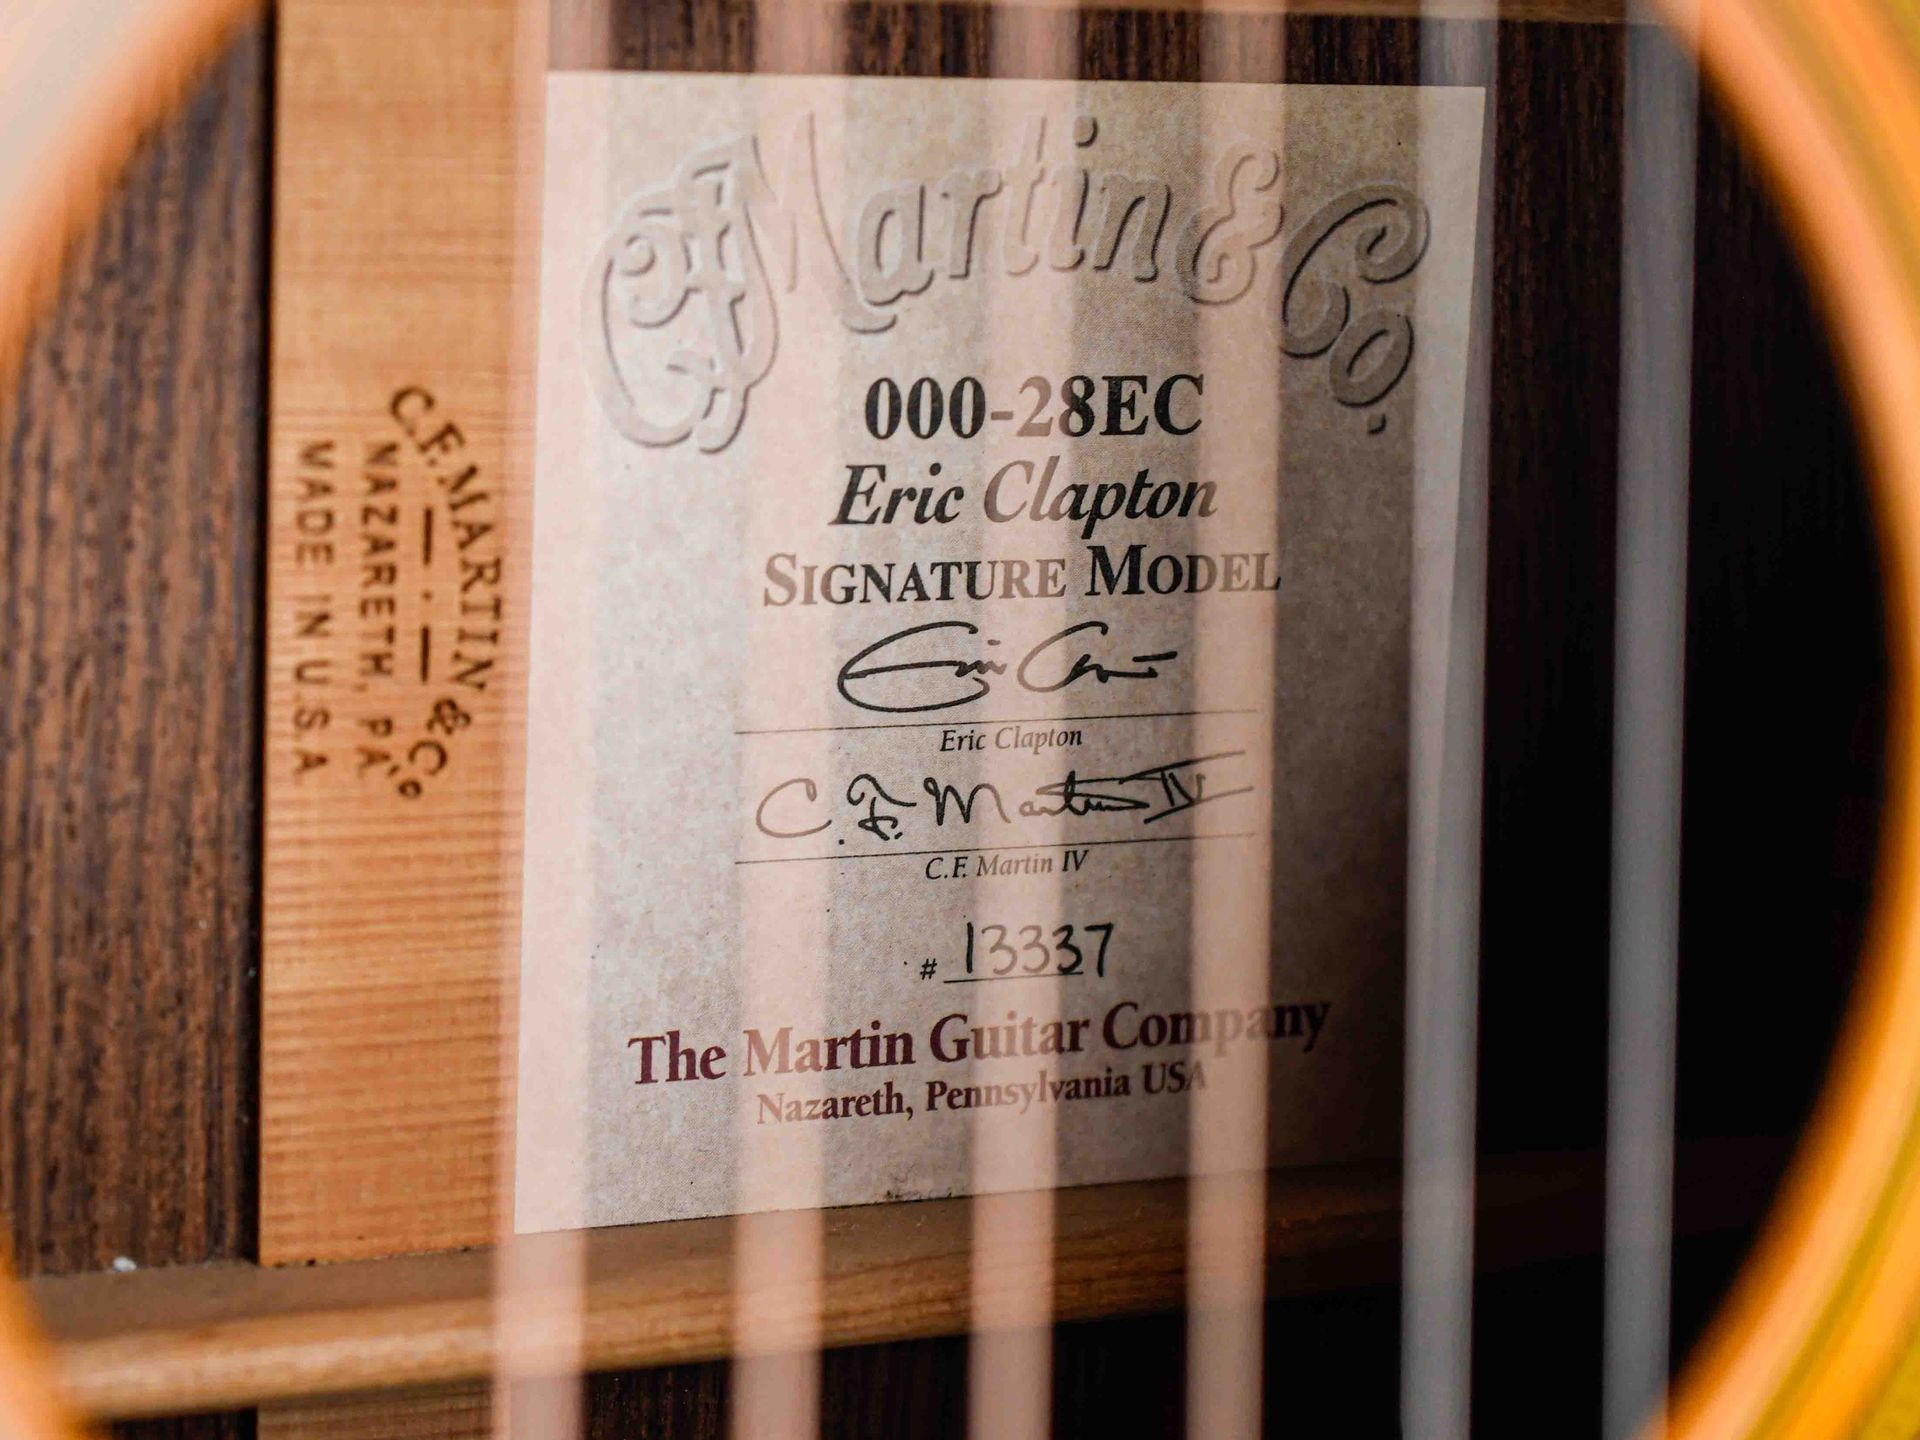 C.F. MARTIN & Co.
NAZARETH, PA.
MADE IN U.S.A
CF Martin & Co.
000-28EC
Eric Clapton
SIGNATURE MODEL
Eric Clapton
Eric Clapton
C. F. Martin IV
C.F. Martin IV
# 13337
The Martin Guitar Company
Nazareth, Pennsylvania USA